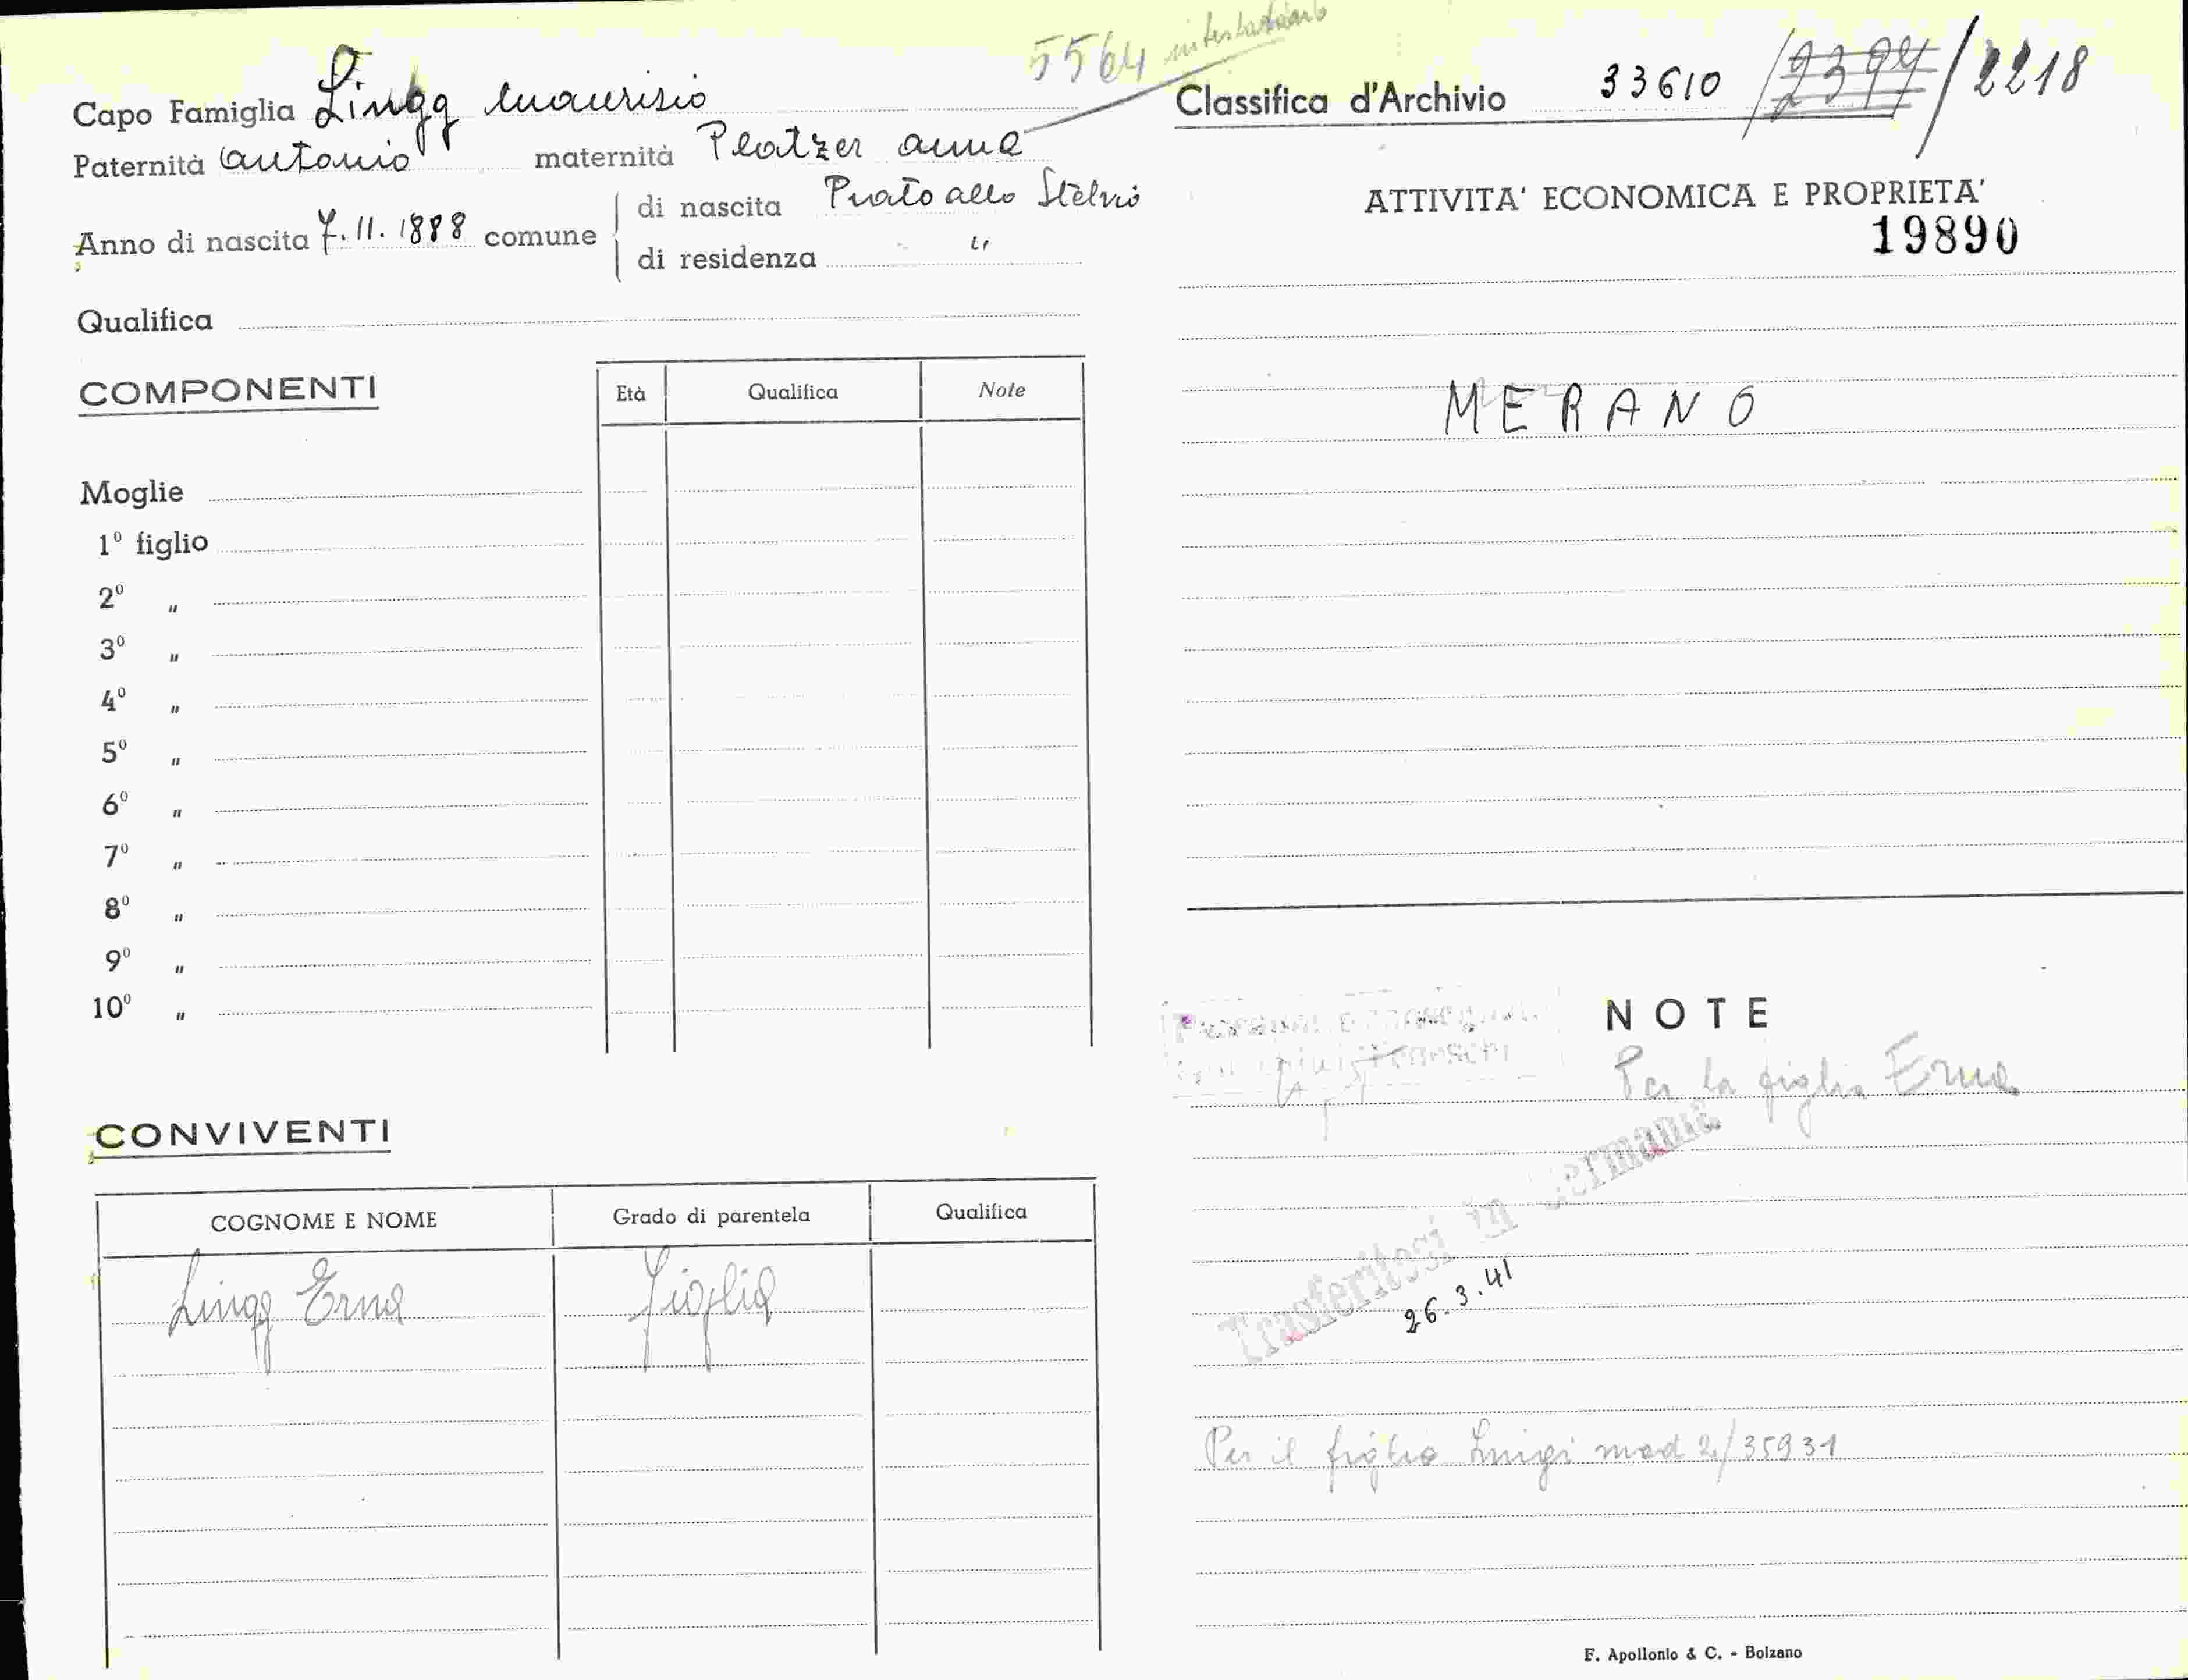 5564
Capo Famiglia Lingg Maurizio
Paternità Antonio maternità Platzer Anna
Anno di nascita 7.11.1888 comune di nascita Prato allo Stelvio
di residenza "
Qualifica
COMPONENTI Età Qualifica Note
Moglie
1º figlio
2º "
3º "
4º "
5º "
6º "
7º "
8º "
9º "
10º "
CONVIVENTI
COGNOME E NOME Grado di parentela Qualifica
Lingg Erna Figlia
Classifica d'Archivio 33610 /2394/2218
ATTIVITA' ECONOMICA E PROPRIETA'
19890
MERANO
NOTE
Per la figlia Erna
Trasferitosi in Germania
26.3.41
Per il figlio Luigi mod 2/35931
F. Apollonio & C. - Bolzano